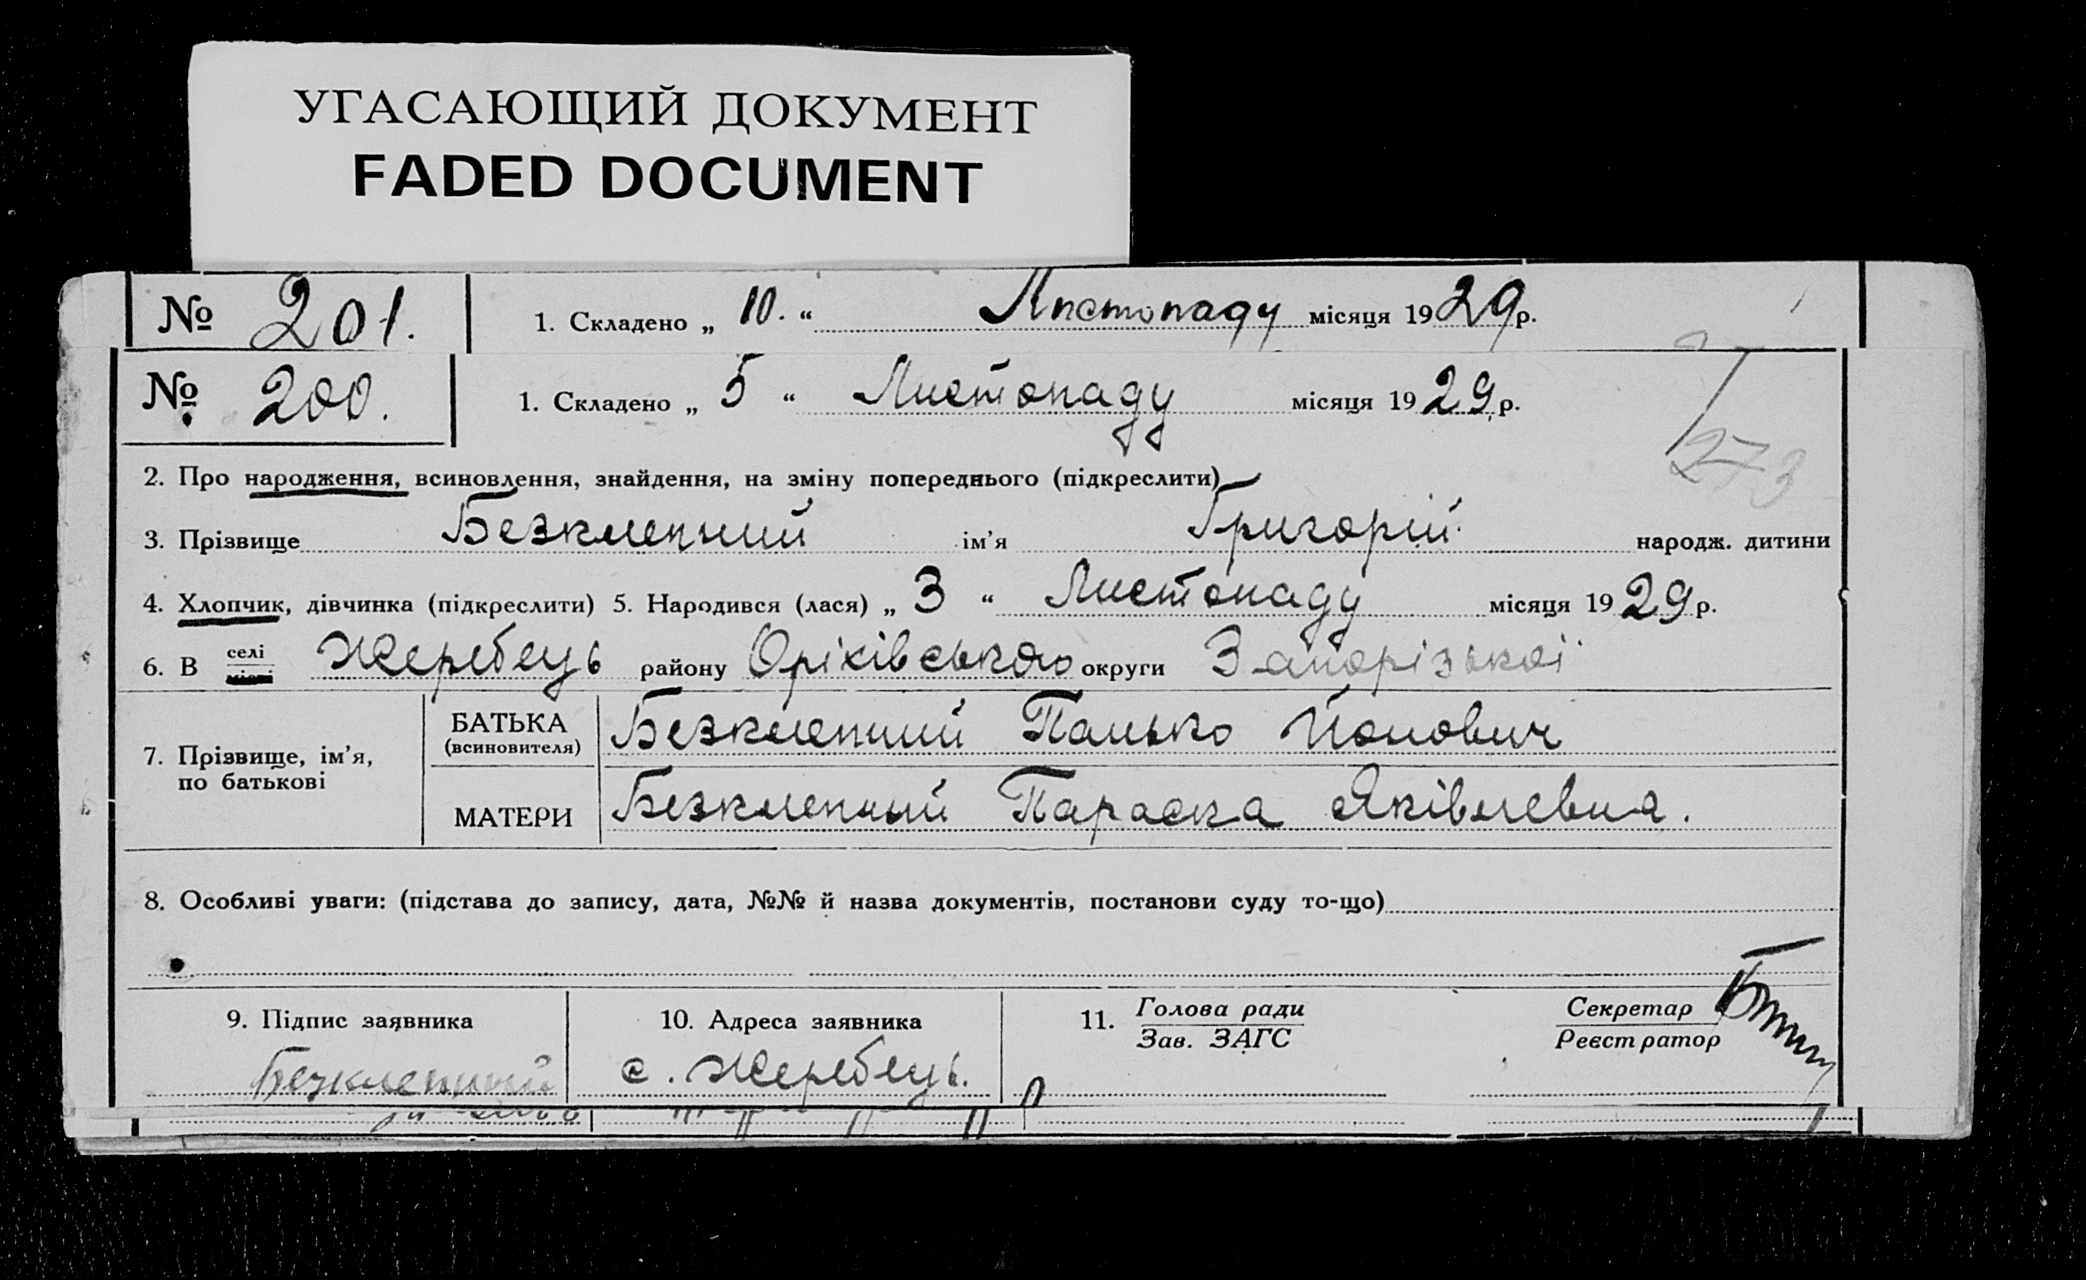 УГАСАЮЩИЙ ДОКУМЕНТ
FADED DOCUMENT
№ 201. 1. Складено „ 10. “ Листопаду місяця 1929р.
№ 200. 1. Складено „ 5 “ Листопаду місяця 1929 р.
273
2. Про народження, всиновлення, знайдення, на зміну попереднього (підкреслити)
3. Прізвище Безклепний ім’я Григорій народж. дитини
4. Хлопчик, дівчинка (підкреслити) 5. Народився (лася) „ 3 “ Листопаду місяця 1929 р.
6. В селі Жеребець району Оріхівського округи Запорізької
7. Прізвище, ім’я, по батькові
БАТЬКА (всиновителя) Безклепний Панько Йонович
МАТЕРИ Безклепний Параска Яківлевна.
8. Особливі уваги: (підстава до запису, дата, №№ й назва документів, постанови суду то-що)
9. Підпис заявника 10. Адреса заявника 11. Голова ради Секретар
Зав. ЗАГС Реєстратор
Безклепний с. Жеребець.